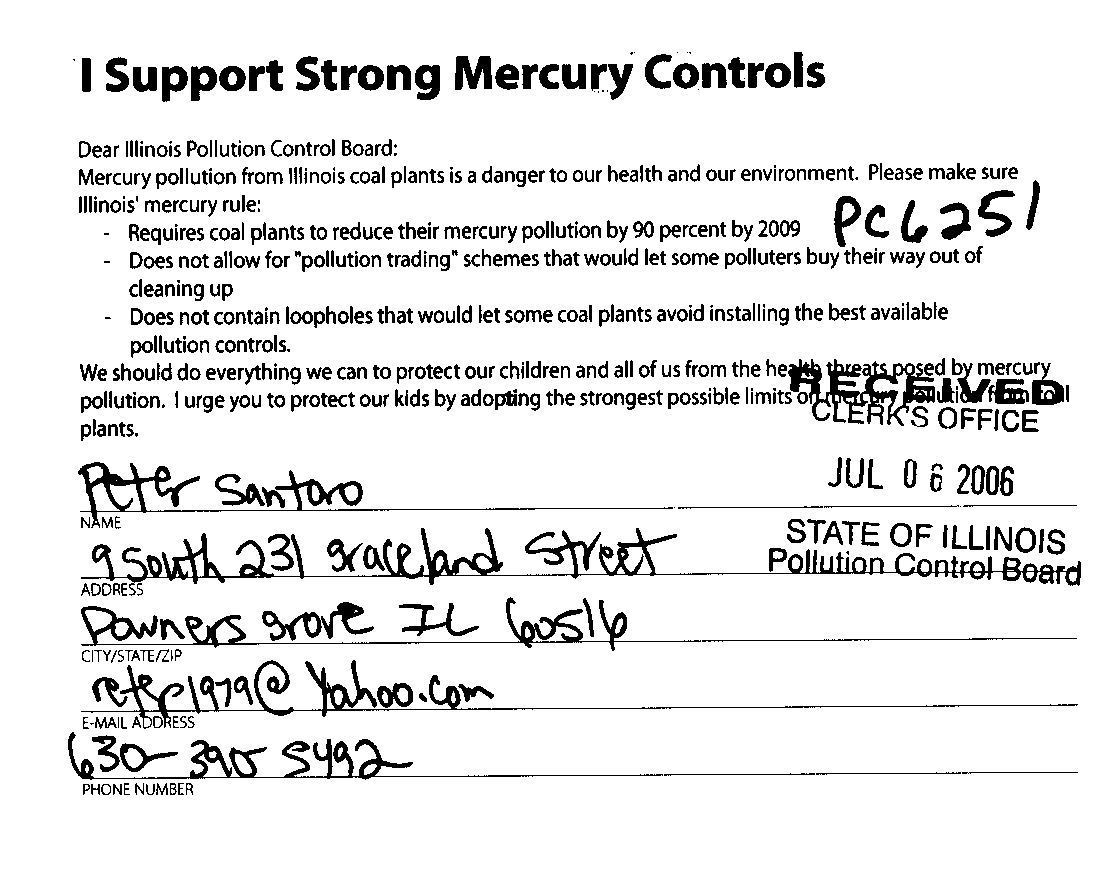 I Support Strong Mercury Controls
Dear Illinois Pollution Control Board:
Mercury pollution from Illinois coal plants is a danger to our health and our environment. Please make sure
Illinois' mercury rule:
- Requires coal plants to reduce their mercury pollution by 90 percent by 2009
PC6251
- Does not allow for "pollution trading" schemes that would let some polluters buy their way out of
cleaning up
- Does not contain loopholes that would let some coal plants avoid installing the best available
pollution controls.
We should do everything we can to protect our children and all of us from the health threats posed by mercury
pollution. I urge you to protect our kids by adopting the strongest possible limits on mercury pollution from coal
plants.
RECEIVED
CLERK'S OFFICE
JUL 06 2006
STATE OF ILLINOIS
Pollution Control Board
Peter Santoro
NAME
9 South 231 graceland Street
ADDRESS
Downers grove IL 60516
CITY/STATE/ZIP
@Yahoo.com
E-MAIL ADDRESS
630-390 5492
PHONE NUMBER